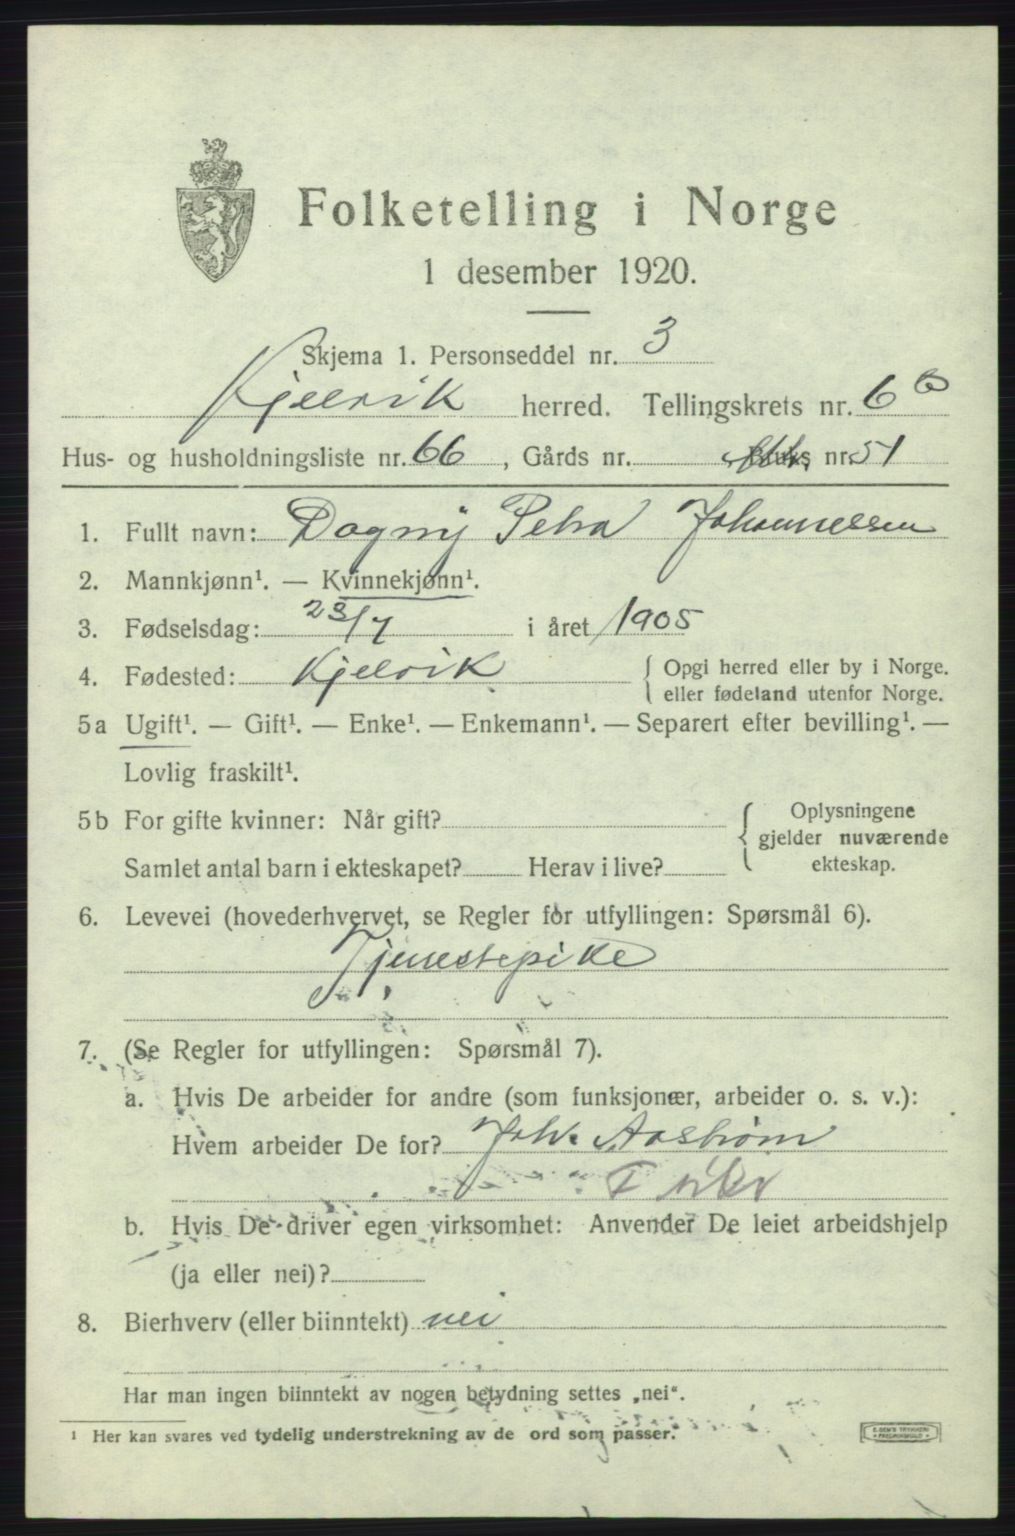 Folketelling i Norge
1 desember 1920.
Skjema 1. Personseddel nr. 3
Kjelvik herred. Tellingskrets nr. 6 b
Hus- og husholdningsliste nr. 66, Gårds nr. Bruks nr. 51
1. Fullt navn: Dagny Petra Johannessen
2. Mannkjønn¹. — Kvinnekjønn¹.
3. Fødselsdag: 23/7 i året 1905
4. Fødested: Kjelvik { Opgi herred eller by i Norge.
eller fødeland utenfor Norge.
5a Ugift¹. — Gift¹. — Enke¹. — Enkemann¹. — Separert efter bevilling¹. —
Lovlig fraskilt¹.
5b For gifte kvinner: Når gift? { Oplysningene
gjelder nuværende
Samlet antal barn i ekteskapet? Herav i live? ekteskap.
6. Levevei (hovederhvervet, se Regler for utfyllingen: Spørsmål 6).
Tjenestepike
7. (Se Regler for utfyllingen: Spørsmål 7).
a. Hvis De arbeider for andre (som funksjonær, arbeider o. s. v.):
Hvem arbeider De for? Joh. Aastrøm
b. Hvis De driver egen virksomhet: Anvender De leiet arbeidshjelp
(ja eller nei)?
8. Bierhverv (eller biinntekt) nei
Har man ingen biinntekt av nogen betydning settes „nei".
¹ Her kan svares ved tydelig understrekning av de ord som passer.